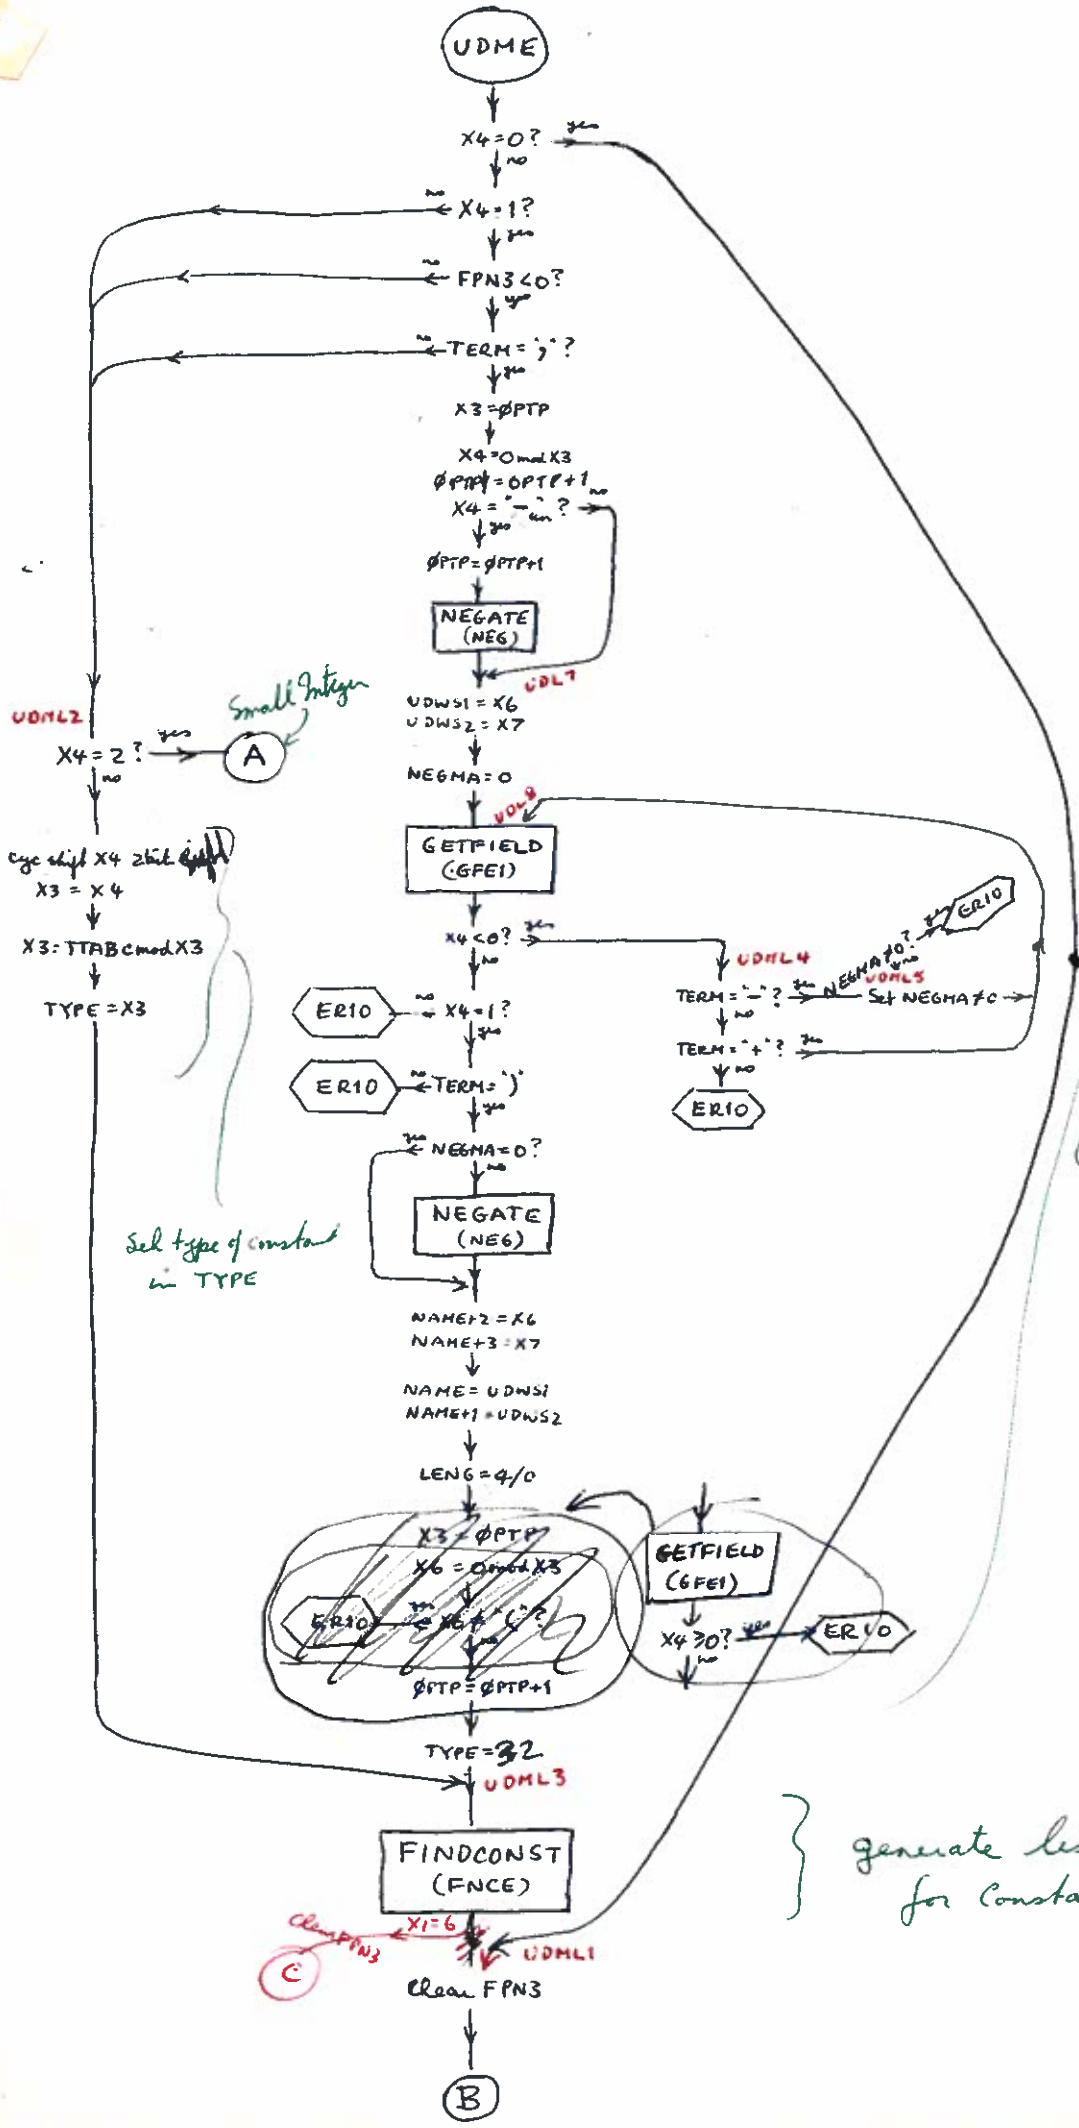 UDME
X4=0? yes
no
no X4=1?
yes
no FPN3<0?
yes
no TERM=";"?
yes
X3=ØPTP
X4=0modX3
ØPTP=ØPTP+1
X4="-un"? no
yes
ØPTP=ØPTP+1
NEGATE
(NEG)
UDL7
UDWS1=X6
UDWS2=X7
NEGMA=0
UDL8
GETFIELD
(GFE1)
X4<0? yes
no
ER10 no X4=1?
yes
ER10 no TERM=")"
yes
yes NEGMA=0?
no
NEGATE
(NEG)
NAME+2=X6
NAME+3=X7
NAME=UDWS1
NAME+1=UDWS2
LENG=4/0
X3=ØPTP
X6=0modX3
ER10 yes X6≠"("?
no
ØPTP=ØPTP+1
TYPE=32
UDML3
FINDCONST
(FNCE)
X1=6
Clear FPN3
C
UDML1
Clear FPN3
B
UDML2
X4=2? yes A
Small Integer
no
cyc shift X4 2bit
X3=X4
X3=TTABCmodX3
TYPE=X3
Set type of constant
in TYPE
UDML4
TERM="-"? yes NEGMA≠0? yes ER10
no
UDML5
Set NEGMA≠0
no
TERM="+"? yes
no
ER10
GETFIELD
(GFE1)
X4≥0? yes ER10
no
generate
for